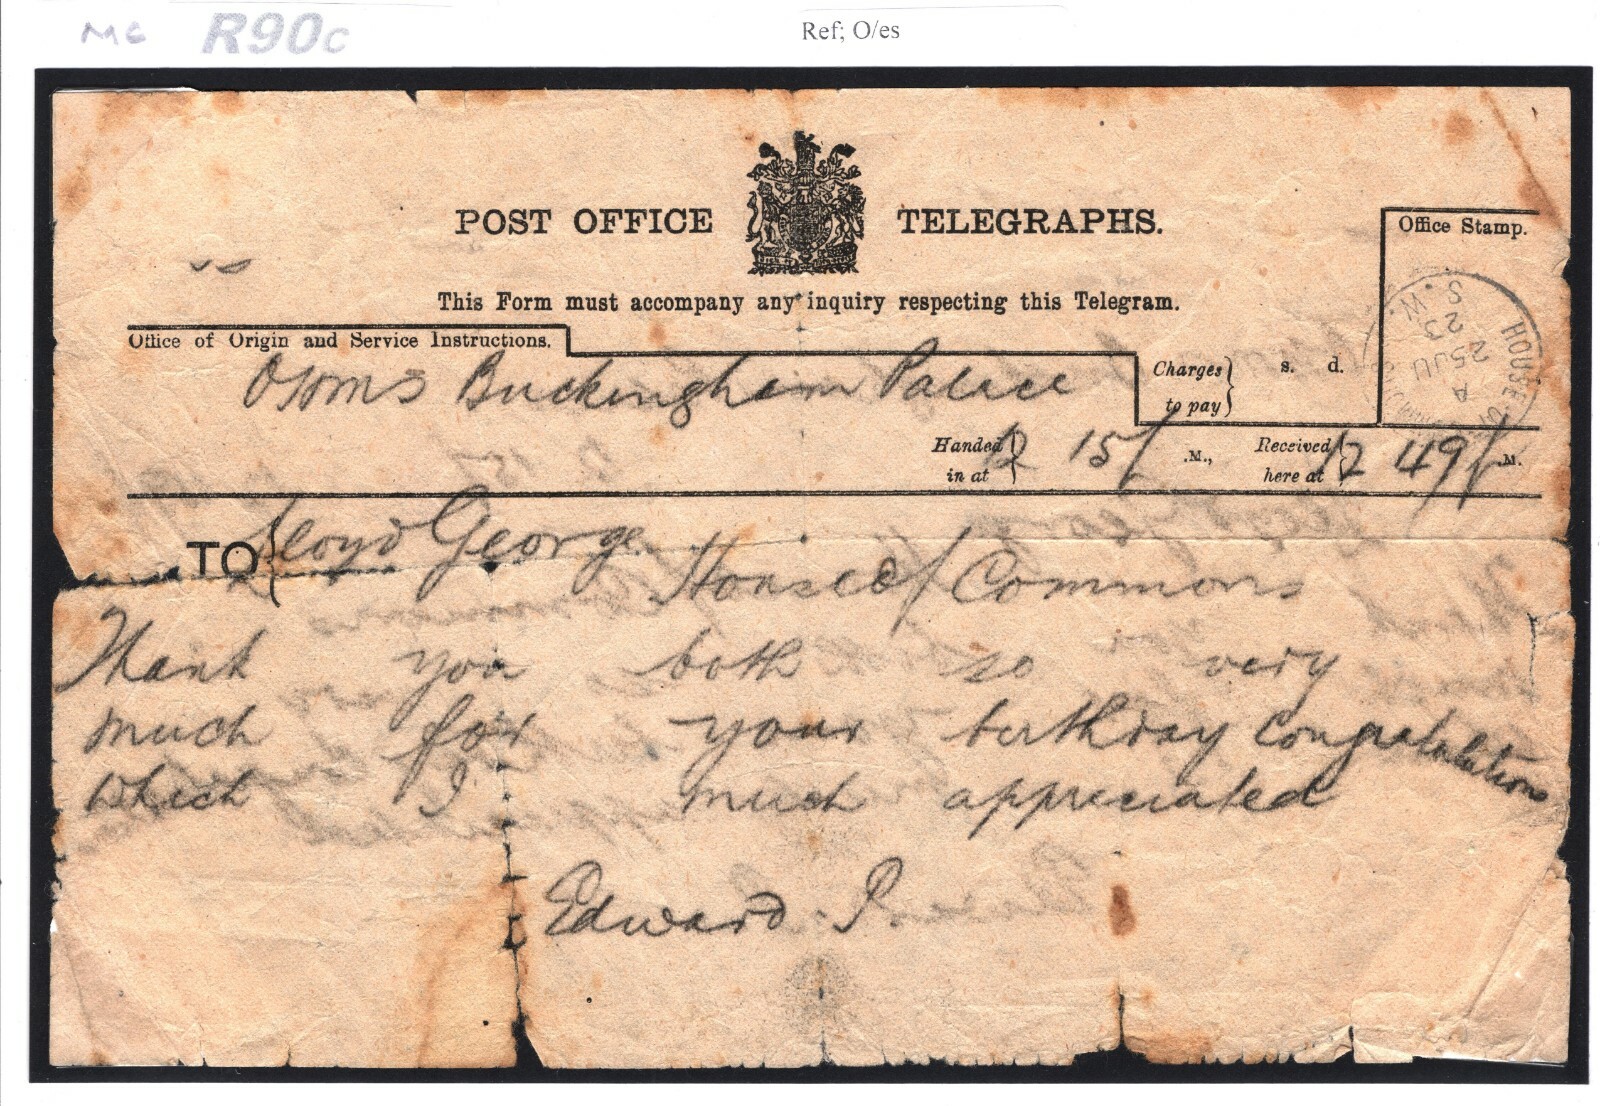 MC R90c
Ref; O/es
POST OFFICE TELEGRAPHS.
This Form must accompany any inquiry respecting this Telegram.
Office Stamp.
HOUSE OF
A
25 JU
23
S.W.
Office of Origin and Service Instructions.
OHMS Buckingham Palace
Charges to pay } s. d.
Handed in at } 12 15 .M., Received here at } 12 49 .M.
TO { Lloyd George
House of Commons
Thank you both so very
much for your birthday congratulations
which I much appreciated
Edward . P.